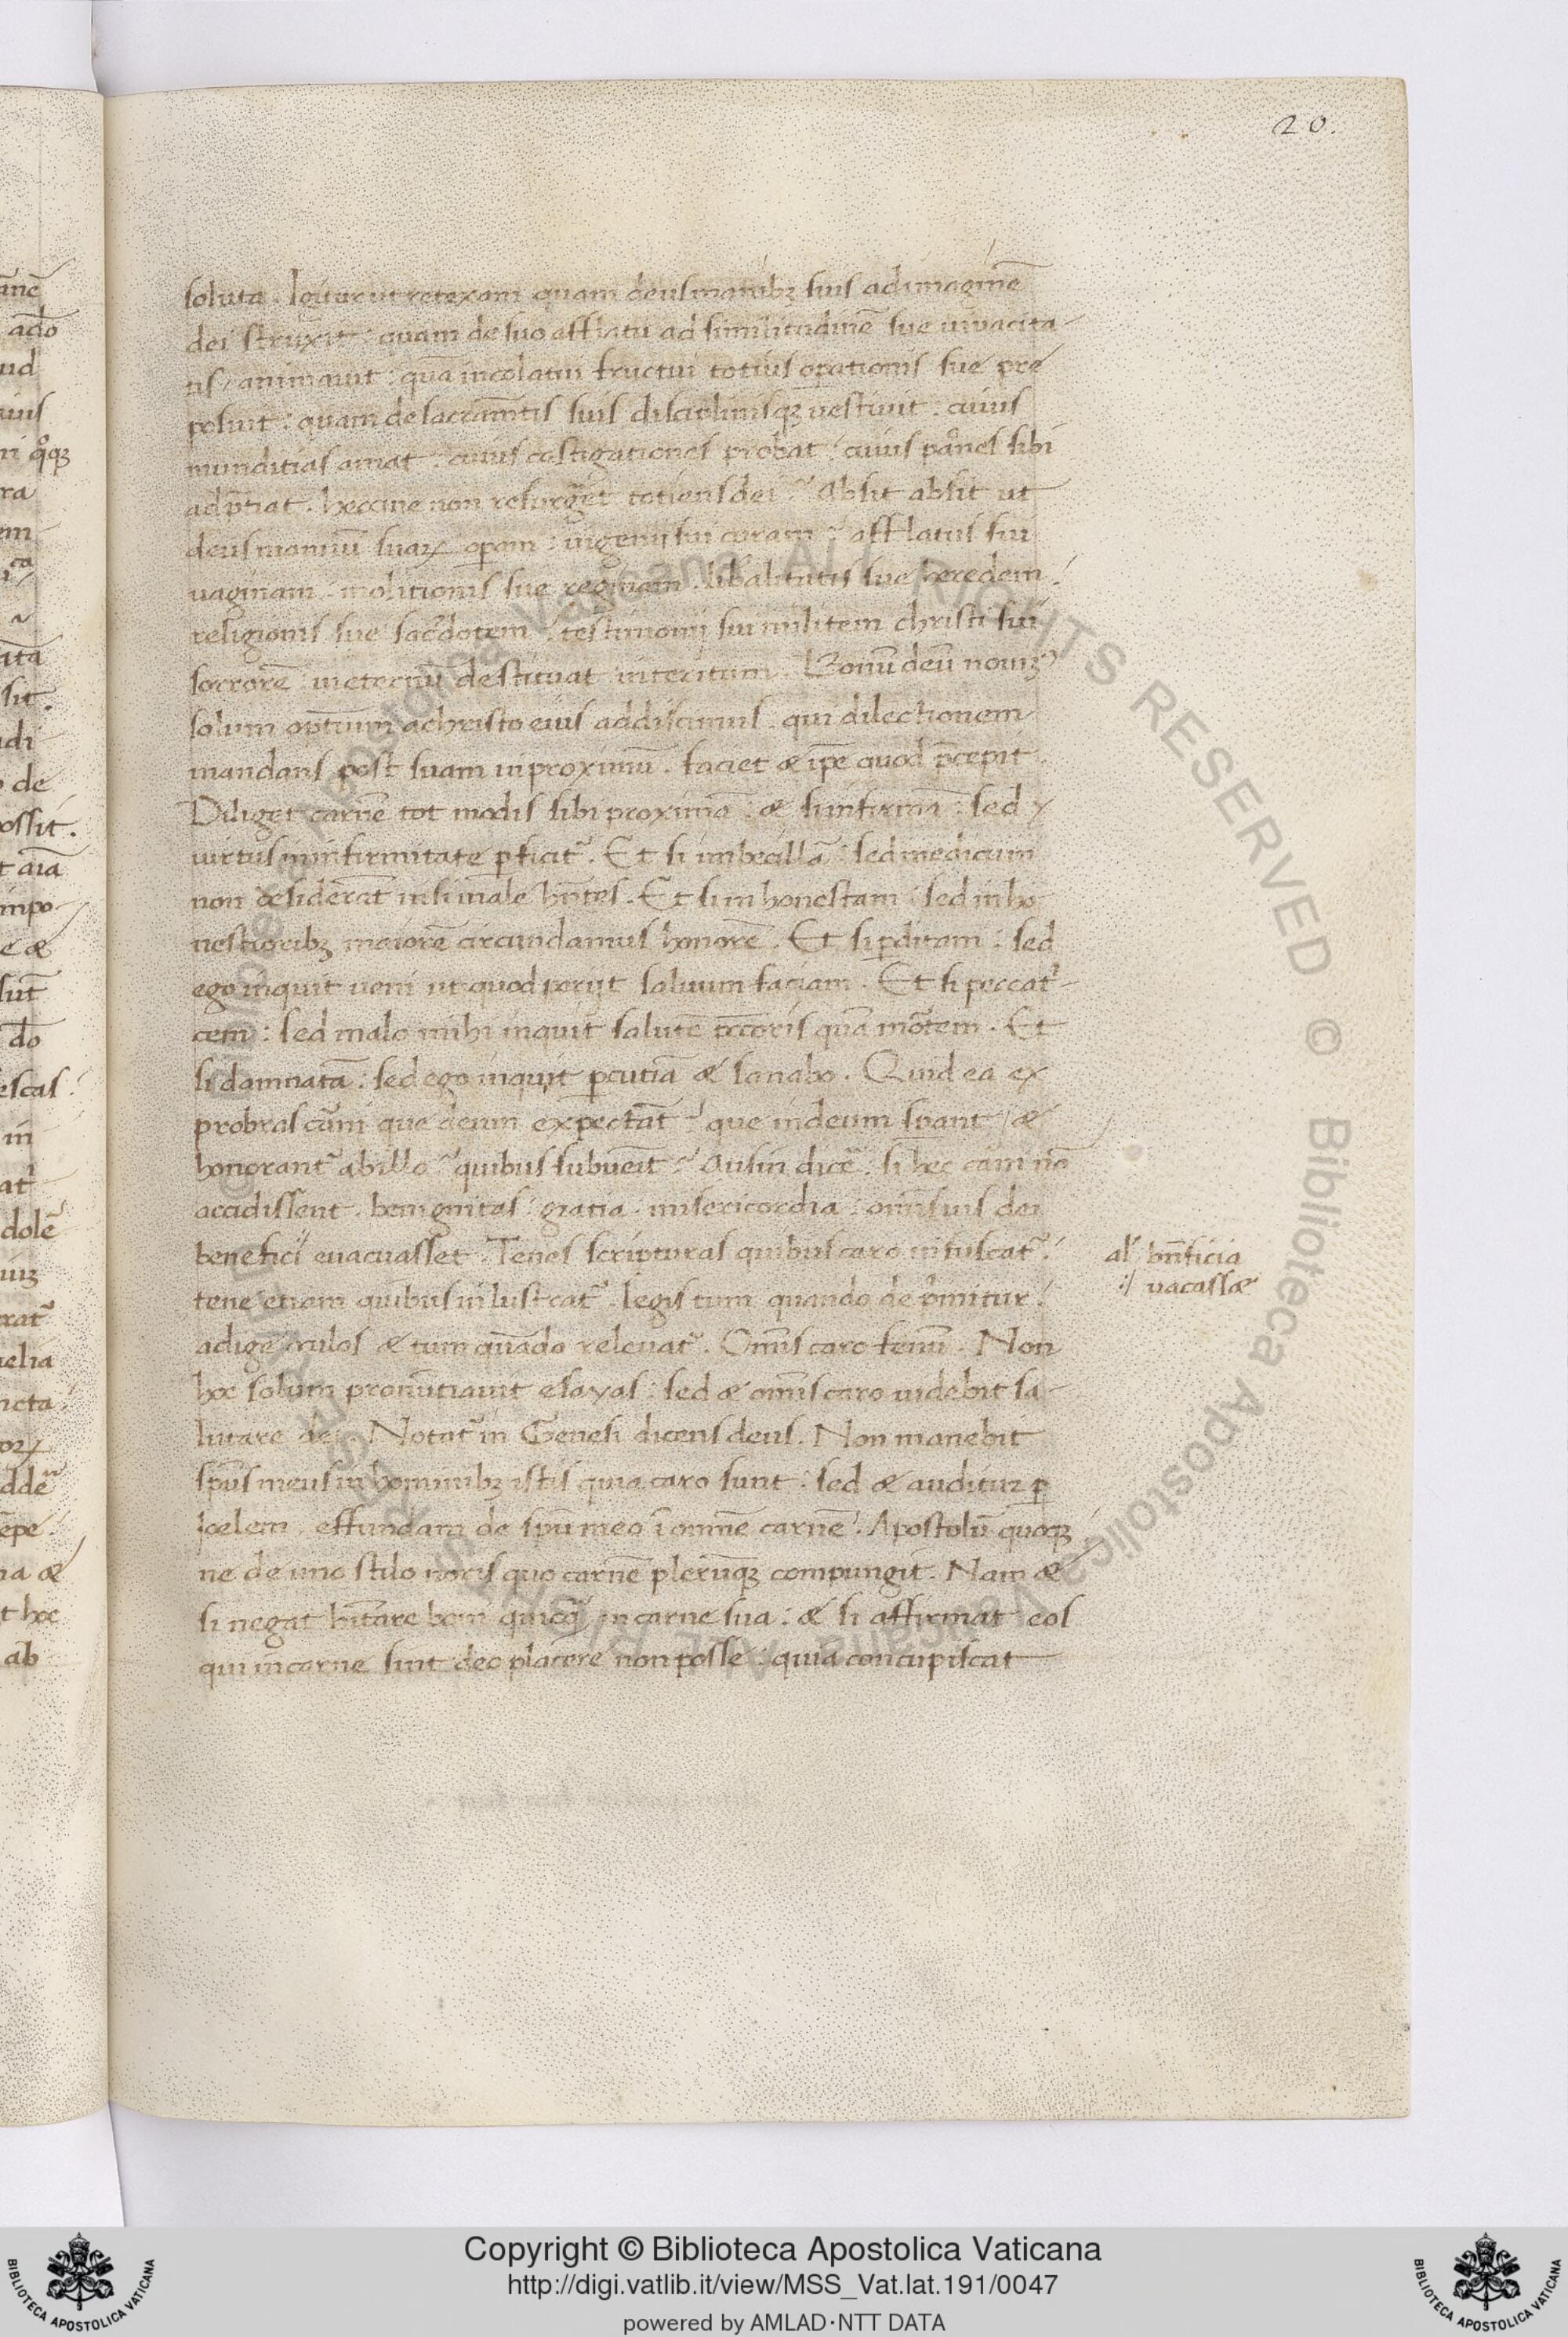 20.
soluta. Igitur ut retexam quam deus manibꝫ suis ad imaginē
dei struxit: quam de suo afflatu ad similitudinē sue uiuacita-
tis animauit: quā incolatui fructui totius oꝑationis sue pre
posuit: quam de sacram̄tis suis disciplinisqꝫ uestiuit: cuius
munditias amat: cuius castigationes probat: cuius passiones sibi
adp̄tiat. heccine non resurget totiens dei? Absit absit ut
deus manuū suaꝝ oꝑam: ingenij sui curam: afflatus sui
uaginam: molitionis sue reginam: libalitatis sue heredem:
religionis sue sac̄dotem: testimonij sui militem christi sui
sororē: in eternū destituat interitum. Bonū deū nouim᷒
solum optimum a christo eius addiscimus. qui dilectionem
mandans post suam in proximū. faciet & ip̄e quod p̄cepit.
Diliget carnē tot modis sibi proximā: & si infirmā: sed
uirtus in infirmitate ꝑficit᷑. Et si imbecillā: sed medicum
non desiderāt nisi male hn̄tes. Et si in honestam: sed inho
nestioribꝫ maiorē circundamus honorē. Et si ꝑditam: sed
ego inquit ueni ut quod perijt saluum faciam. Et si peccat᷑-
cem: sed malo mihi inquit salutē pcc̄oris quā mortem. Et
si damnatā: sed ego inquit ꝑcutiā & sanabo. Quid ea ex
probras carni que deum expectāt? que in deum sꝑant &
honorant᷑ ab illo? quibus subuenit? Ausim dicē: si hec carni nō
accidissent. benignitas: gratia. misericordia: omnis uis dei
benefici euacuasset. Tenes scripturas quibus caro infuscat᷑:
tene etiam quibus inlustrat᷑. legis tum quando deprimitur:
adige oculos & tum quando releuat᷑. Omnis caro fenum. Non
hoc solum pronūtiauit esayas: sed & omnis caro uidebit sa-
lutare dei. Notat᷑ in Genesi dicens deus. Non manebit
sp̄us meus in hominibꝫ istis quia caro sunt: sed & auditur ꝑ
Ioelem. effundam de sp̄u meo ī omnē carnē. Apostolū quoqꝫ
ne de uno stilo noris quo carnē plerūqꝫ compungit. Nam &
si negat h̄itare boni quicq̄ in carne sua: & si affirmat eos
qui in carne sunt deo placere non posse: quia concupiscat
al' bn̄ficia
:/ uacassæ
Copyright © Biblioteca Apostolica Vaticana
http://digi.vatlib.it/view/MSS_Vat.lat.191/0047
powered by AMLAD·NTT DATA